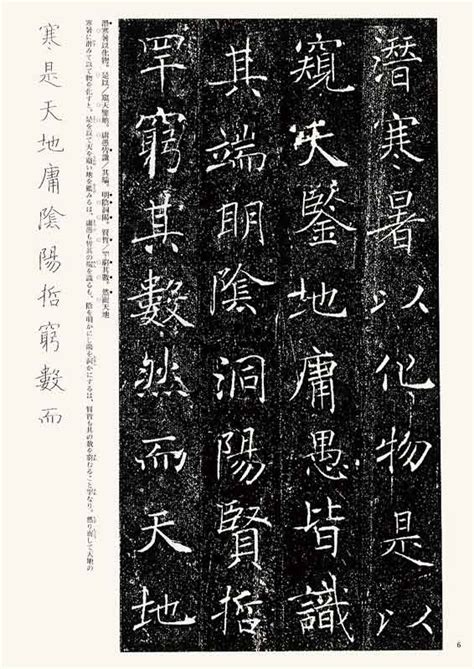 潛寒暑以化物是以
窺天鑒地庸愚皆識
其端明陰洞陽賢哲
罕窮其數然而天地
潛寒暑以化物。是以／窺天鑒地。庸愚皆識／其端。明陰洞陽。賢哲／罕窮其數。然而天地
寒暑に潜みて以て物を化すと。是を以て天を窺い地を鑑みるは、庸愚も皆其の端を識るも、陰を明かにし陽を洞かにするは、賢哲も其の数を窮むること罕なり。然り而して天地の
寒是天地庸陰陽哲窮數而
6